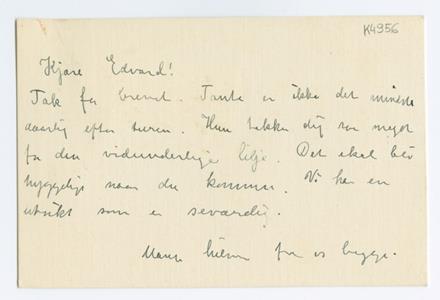 K4956
Kjære Edvard!
Tak for brevet. Tante er ikke det mindste
daarlig efter turen. Hun takker dig saa meget
for den vidunderlige lilje. Det skal bli
hyggelig naar du kommer. Vi har en
utsikt som er seværdig.
Mange hilsner fra os begge.